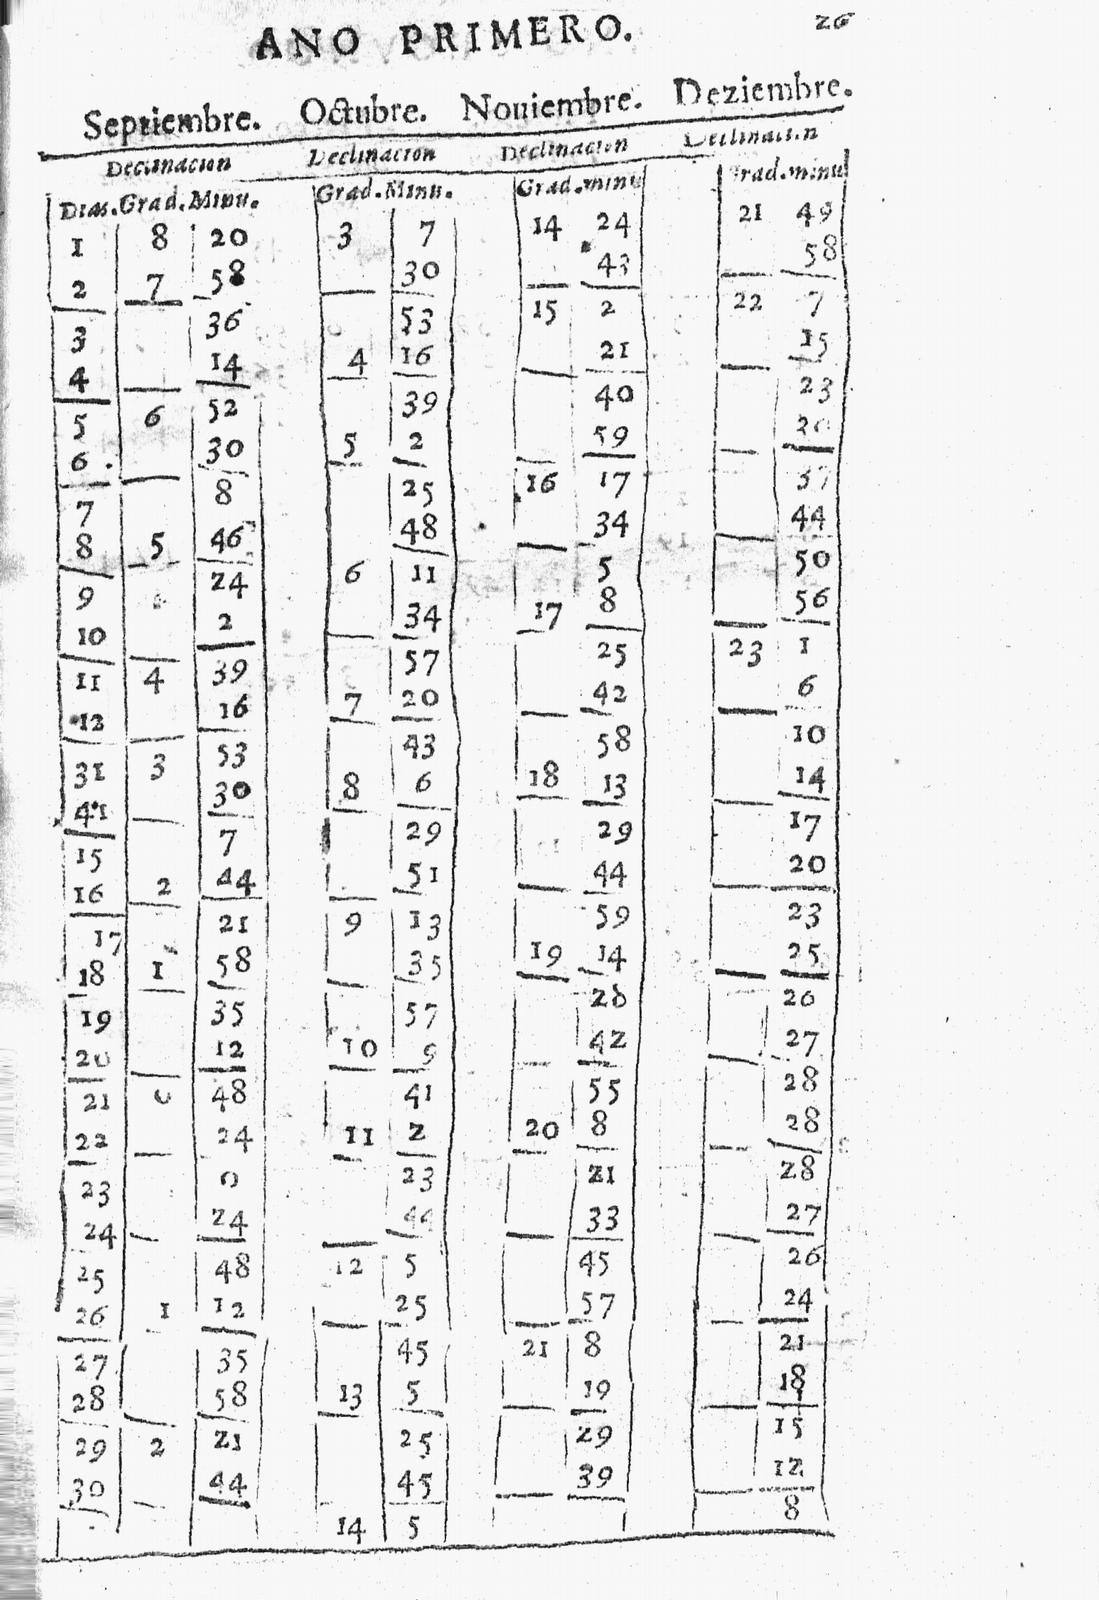 ANO PRIMERO. 26
Septiembre. Octubre. Nouiembre. Deziembre.
Declinacion Declinacion Declinacion Declinacion
Dias. Grad. Minu. Grad. Minu. Grad. minu Grad. minu
1 8 20 3 7 14 24 21 49
2 7 58 30 43 58
3 36 53 15 2 22 7
4 14 4 16 21 15
5 6 52 39 40 23
6. 30 5 2 59 30
7 8 25 16 17 37
8 5 46 48 34 44
9 24 6 11 5 50
10 2 34 17 8 56
11 4 39 57 25 23 1
12 16 7 20 42 6
31 3 53 43 58 10
41 30 8 6 18 13 14
15 7 29 29 17
16 2 44 51 44 20
17 21 9 13 59 23
18 1 58 35 19 14 25
19 35 57 28 26
20 12 10 9 42 27
21 0 48 41 55 28
22 24 11 2 20 8 28
23 0 23 21 28
24 24 44 33 27
25 48 12 5 45 26
26 1 12 25 57 24
27 35 45 21 8 21
28 58 13 5 19 18
29 2 21 25 29 15
30 44 45 39 12
14 5 8